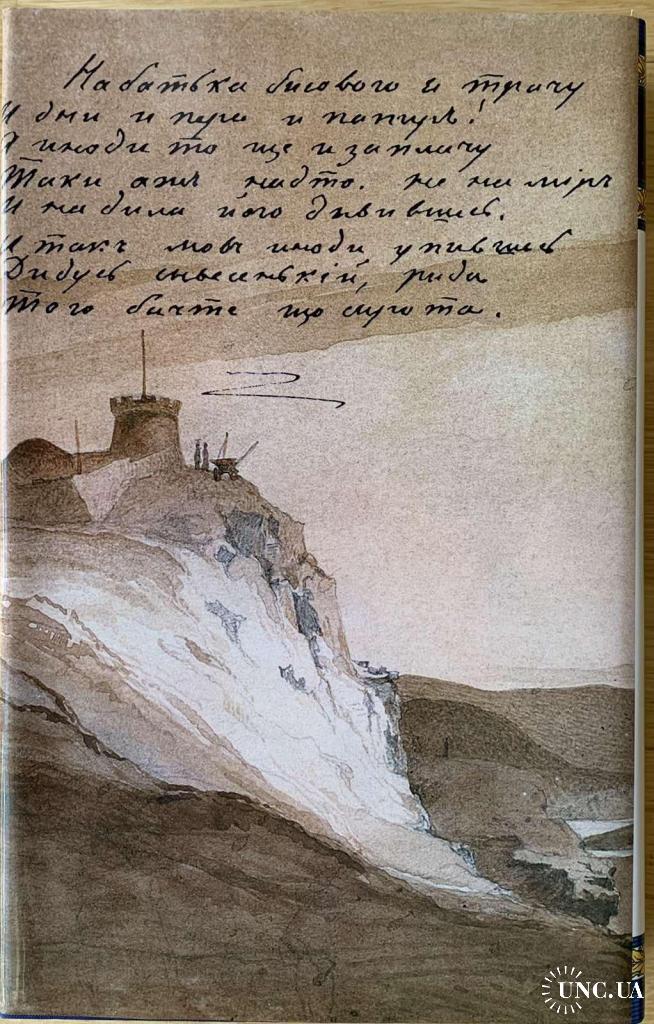 На батька бисового я трачу
И дни и пера и папиръ!
А иноди то ще и заплачу
Таки ажъ надто. не на міръ
И на дила його дивившись.
А такъ мовъ иноди упившись
Дидусь сивесенькій, рида
Того бачте що сирота.
UNC.UA